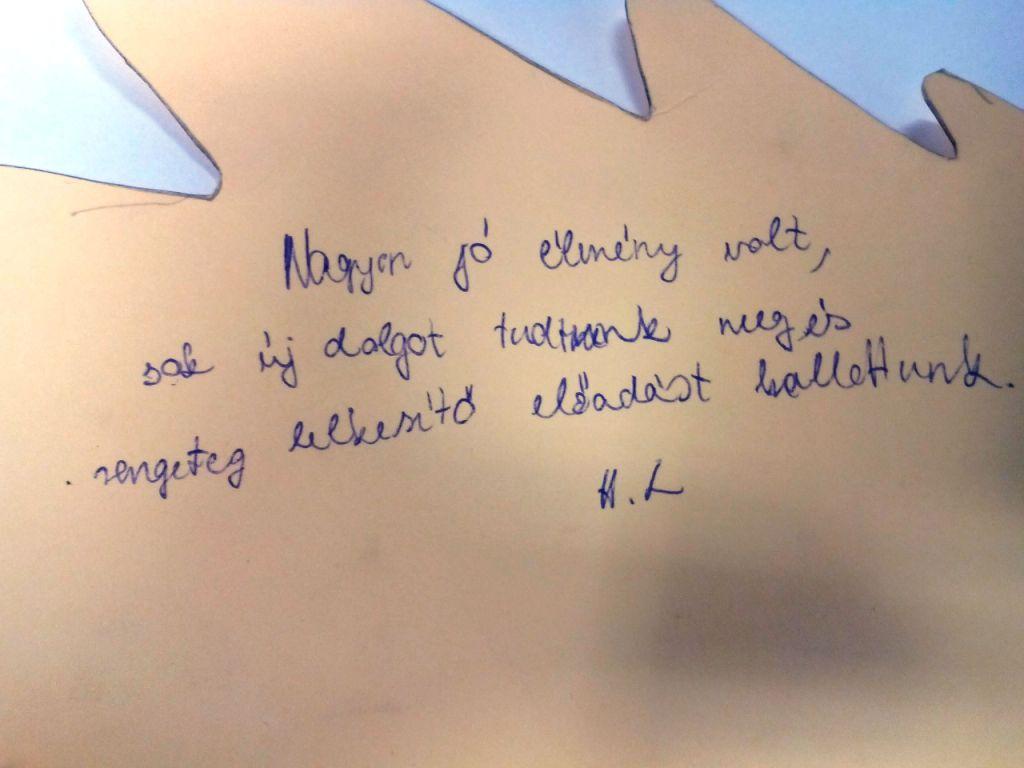 Nagyon jó élmény volt,
sok új dolgot tudtunk meg és
rengeteg lelkesítő előadást hallottunk.
H. L